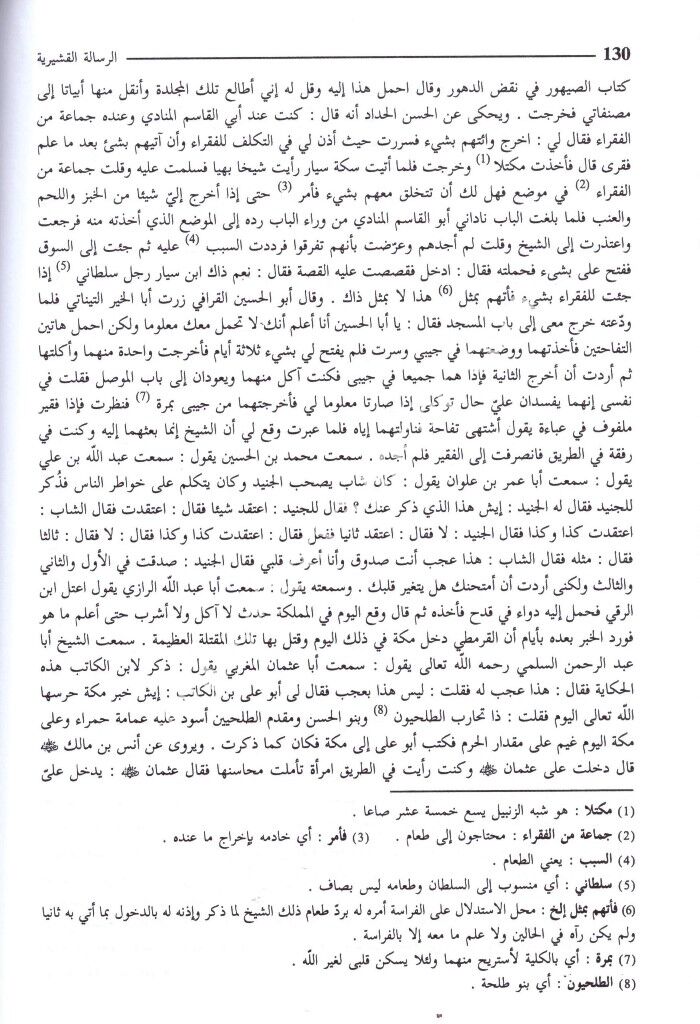 130 الرسالة القشيرية
كتاب الصيهور في نقض الدهور وقال احمل هذا إليه وقل له إني أطالع تلك المجلدة وأنقل منها أبياتا إلى
مصنفاتي فخرجت . ويحكى عن الحسن الحداد أنه قال : كنت عند أبي القاسم المنادي وعنده جماعة من
الفقراء فقال لي : اخرج وائتهم بشيء فسررت حيث أذن لي في التكلف للفقراء وأن آتيهم بشئ بعد ما علم
فقرى قال فأخذت مكتلا (1) وخرجت فلما أتيت سكة سيار رأيت شيخا بهيا فسلمت عليه وقلت جماعة من
الفقراء (2) في موضع فهل لك أن تتخلق معهم بشيء فأمر (3) حتى إذا أخرج إليّ شيئا من الخبز واللحم
والعنب فلما بلغت الباب ناداني أبو القاسم المنادي من وراء الباب رده إلى الموضع الذي أخذته منه فرجعت
واعتذرت إلى الشيخ وقلت لم أجدهم وعرّضت بأنهم تفرقوا فرددت السبب (4) عليه ثم جئت إلى السوق
ففتح على بشىء فحملته فقال : ادخل فقصصت عليه القصة فقال : نعم ذاك ابن سيار رجل سلطاني (5) إذا
جئت للفقراء بشيء فأتهم بمثل (6) هذا لا بمثل ذاك . وقال أبو الحسين القرافي زرت أبا الخير التيناتي فلما
ودّعته خرج معى إلى باب المسجد فقال : يا أبا الحسين أنا أعلم أنك لا تحمل معك معلوما ولكن احمل هاتين
التفاحتين فأخذتهما ووضعتهما في جيبي وسرت فلم يفتح لي بشيء ثلاثة أيام فأخرجت واحدة منهما وأكلتها
ثم أردت أن أخرج الثانية فإذا هما جميعا في جيبى فكنت آكل منهما ويعودان إلى باب الموصل فقلت في
نفسى إنهما يفسدان عليّ حال توكلى إذا صارتا معلوما لي فأخرجتهما من جيبى بمرة (7) فنظرت فإذا فقير
ملفوف في عباءة يقول أشتهى تفاحة فناولتهما إياه فلما عبرت وقع لي أن الشيخ إنما بعثهما إليه وكنت في
رفقة في الطريق فانصرفت إلى الفقير فلم أجده . سمعت محمد بن الحسين يقول : سمعت عبد الله بن علي
يقول : سمعت أبا عمر بن علوان يقول : كان شاب يصحب الجنيد وكان يتكلم على خواطر الناس فذُكر
للجنيد فقال له الجنيد : إيش هذا الذي ذكر عنك ؟ فقال للجنيد : اعتقد شيئا فقال : اعتقدت فقال الشاب :
اعتقدت كذا وكذا فقال الجنيد : لا فقال : اعتقد ثانيا ففعل فقال : اعتقدت كذا وكذا فقال : لا فقال : ثالثا
فقال : مثله فقال الشاب : هذا عجب أنت صدوق وأنا أعرف قلبي فقال الجنيد : صدقت في الأول والثاني
والثالث ولكنى أردت أن أمتحنك هل يتغير قلبك . وسمعته يقول : سمعت أبا عبد الله الرازي يقول اعتل ابن
الرقي فحمل إليه دواء في قدح فأخذه ثم قال وقع اليوم في المملكة حدث لا آكل ولا أشرب حتى أعلم ما هو
فورد الخبر بعده بأيام أن القرمطي دخل مكة في ذلك اليوم وقتل بها تلك المقتلة العظيمة . سمعت الشيخ أبا
عبد الرحمن السلمي رحمه الله تعالى يقول : سمعت أبا عثمان المغربي يقول : ذكر لابن الكاتب هذه
الحكاية فقال : هذا عجب له فقلت : ليس هذا بعجب فقال لى أبو على بن الكاتب : إيش خبر مكة حرسها
الله تعالى اليوم فقلت : ذا تحارب الطلحيون (8) وبنو الحسن ومقدم الطلحيين أسود عليه عمامة حمراء وعلى
مكة اليوم غيم على مقدار الحرم فكتب أبو على إلى مكة فكان كما ذكرت . ويروى عن أنس بن مالك ﷺ
قال دخلت على عثمان ﷺ وكنت رأيت في الطريق امرأة تأملت محاسنها فقال عثمان ﷺ : يدخل علىّ
(1) مكتلا : هو شبه الزنبيل يسع خمسة عشر صاعا .
(2) جماعة من الفقراء : محتاجون إلى طعام . (3) فأمر : أي خادمه بإخراج ما عنده .
(4) السبب : يعني الطعام .
(5) سلطاني : أي منسوب إلى السلطان وطعامه ليس بصاف .
(6) فأتهم بمثل إلخ : محل الاستدلال على الفراسة أمره له بردّ طعام ذلك الشيخ لما ذكر وإذنه له بالدخول بما أتي به ثانيا
ولم يكن رآه في الحالين ولا علم ما معه إلا بالفراسة .
(7) بمرة : أي بالكلية لأستريح منهما ولئلا يسكن قلبى لغير الله .
(8) الطلحيون : أي بنو طلحة .